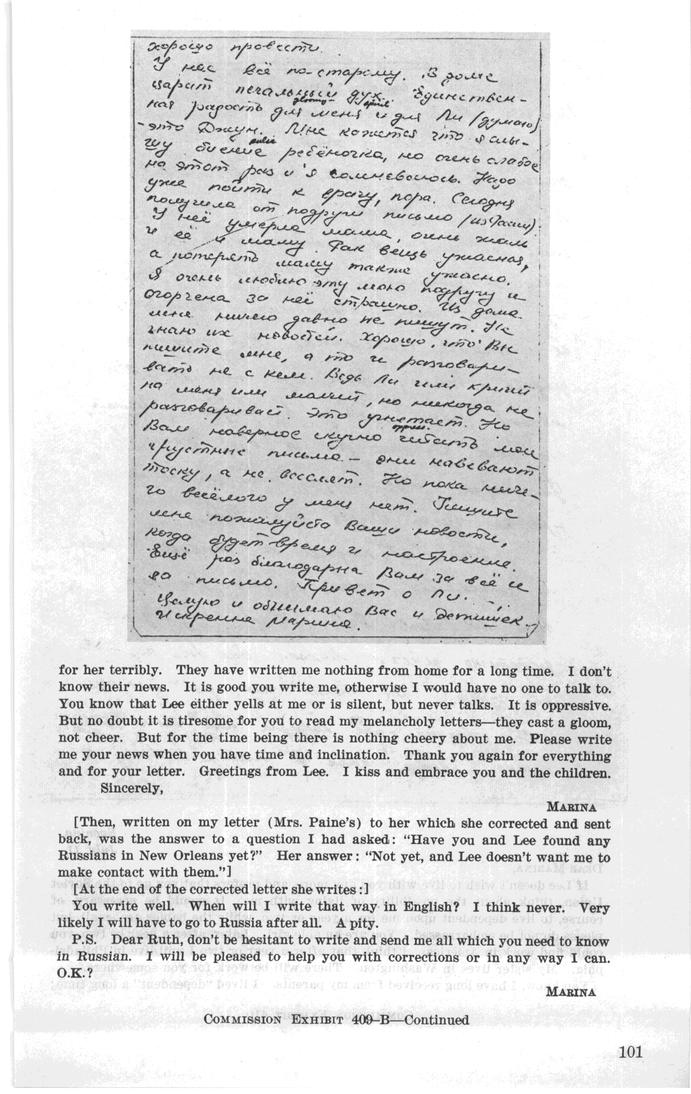 хорошо провести.
У нас всё по-старому. В доме
царит печальный дух. Единствен-
gloomy spirit
ная радость для меня и для Ли (думаю)
- это Джун. Мне кажется что я слы-
pulse
шу биение ребёночка, но очень слабое
на этот раз и я сомневаюсь. Надо
уже пойти к врачу, пора. Сегодня
получила от подруги письмо (из России).
У неё умерла мама, очень жаль
и её и маму. Рак вещь ужасная,
а потерять маму также ужасно.
Я очень люблю эту мою подругу и
огорчена за неё страшно. Из дома
мне ничего давно не пишут. Не
знаю их новостей. Хорошо, что Вы
пишите мне, а то и разговари-
вать не с кем. Ведь Ли или кричит
на меня или молчит, но никогда не
разговаривает. Это угнетает. Но
oppress
Вам наверное скучно читать мои
грустные письма - они навевают
тоску, а не веселят. Но пока ниче-
го весёлого у меня нет. Пишите
мне пожалуйста Ваши новости,
когда будет время и настроение.
Ещё раз благодарна Вам за всё и
за письмо. Привет о Ли.
Целую и обнимаю Вас и детишек.
Искренне Марина.
for her terribly. They have written me nothing from home for a long time. I don't
know their news. It is good you write me, otherwise I would have no one to talk to.
You know that Lee either yells at me or is silent, but never talks. It is oppressive.
But no doubt it is tiresome for you to read my melancholy letters—they cast a gloom,
not cheer. But for the time being there is nothing cheery about me. Please write
me your news when you have time and inclination. Thank you again for everything
and for your letter. Greetings from Lee. I kiss and embrace you and the children.
Sincerely,
MARINA
[Then, written on my letter (Mrs. Paine's) to her which she corrected and sent
back, was the answer to a question I had asked: "Have you and Lee found any
Russians in New Orleans yet?" Her answer: "Not yet, and Lee doesn't want me to
make contact with them."]
[At the end of the corrected letter she writes:]
You write well. When will I write that way in English? I think never. Very
likely I will have to go to Russia after all. A pity.
P.S. Dear Ruth, don't be hesitant to write and send me all which you need to know
in Russian. I will be pleased to help you with corrections or in any way I can.
O.K.?
MARINA
COMMISSION EXHIBIT 409-B—Continued
101